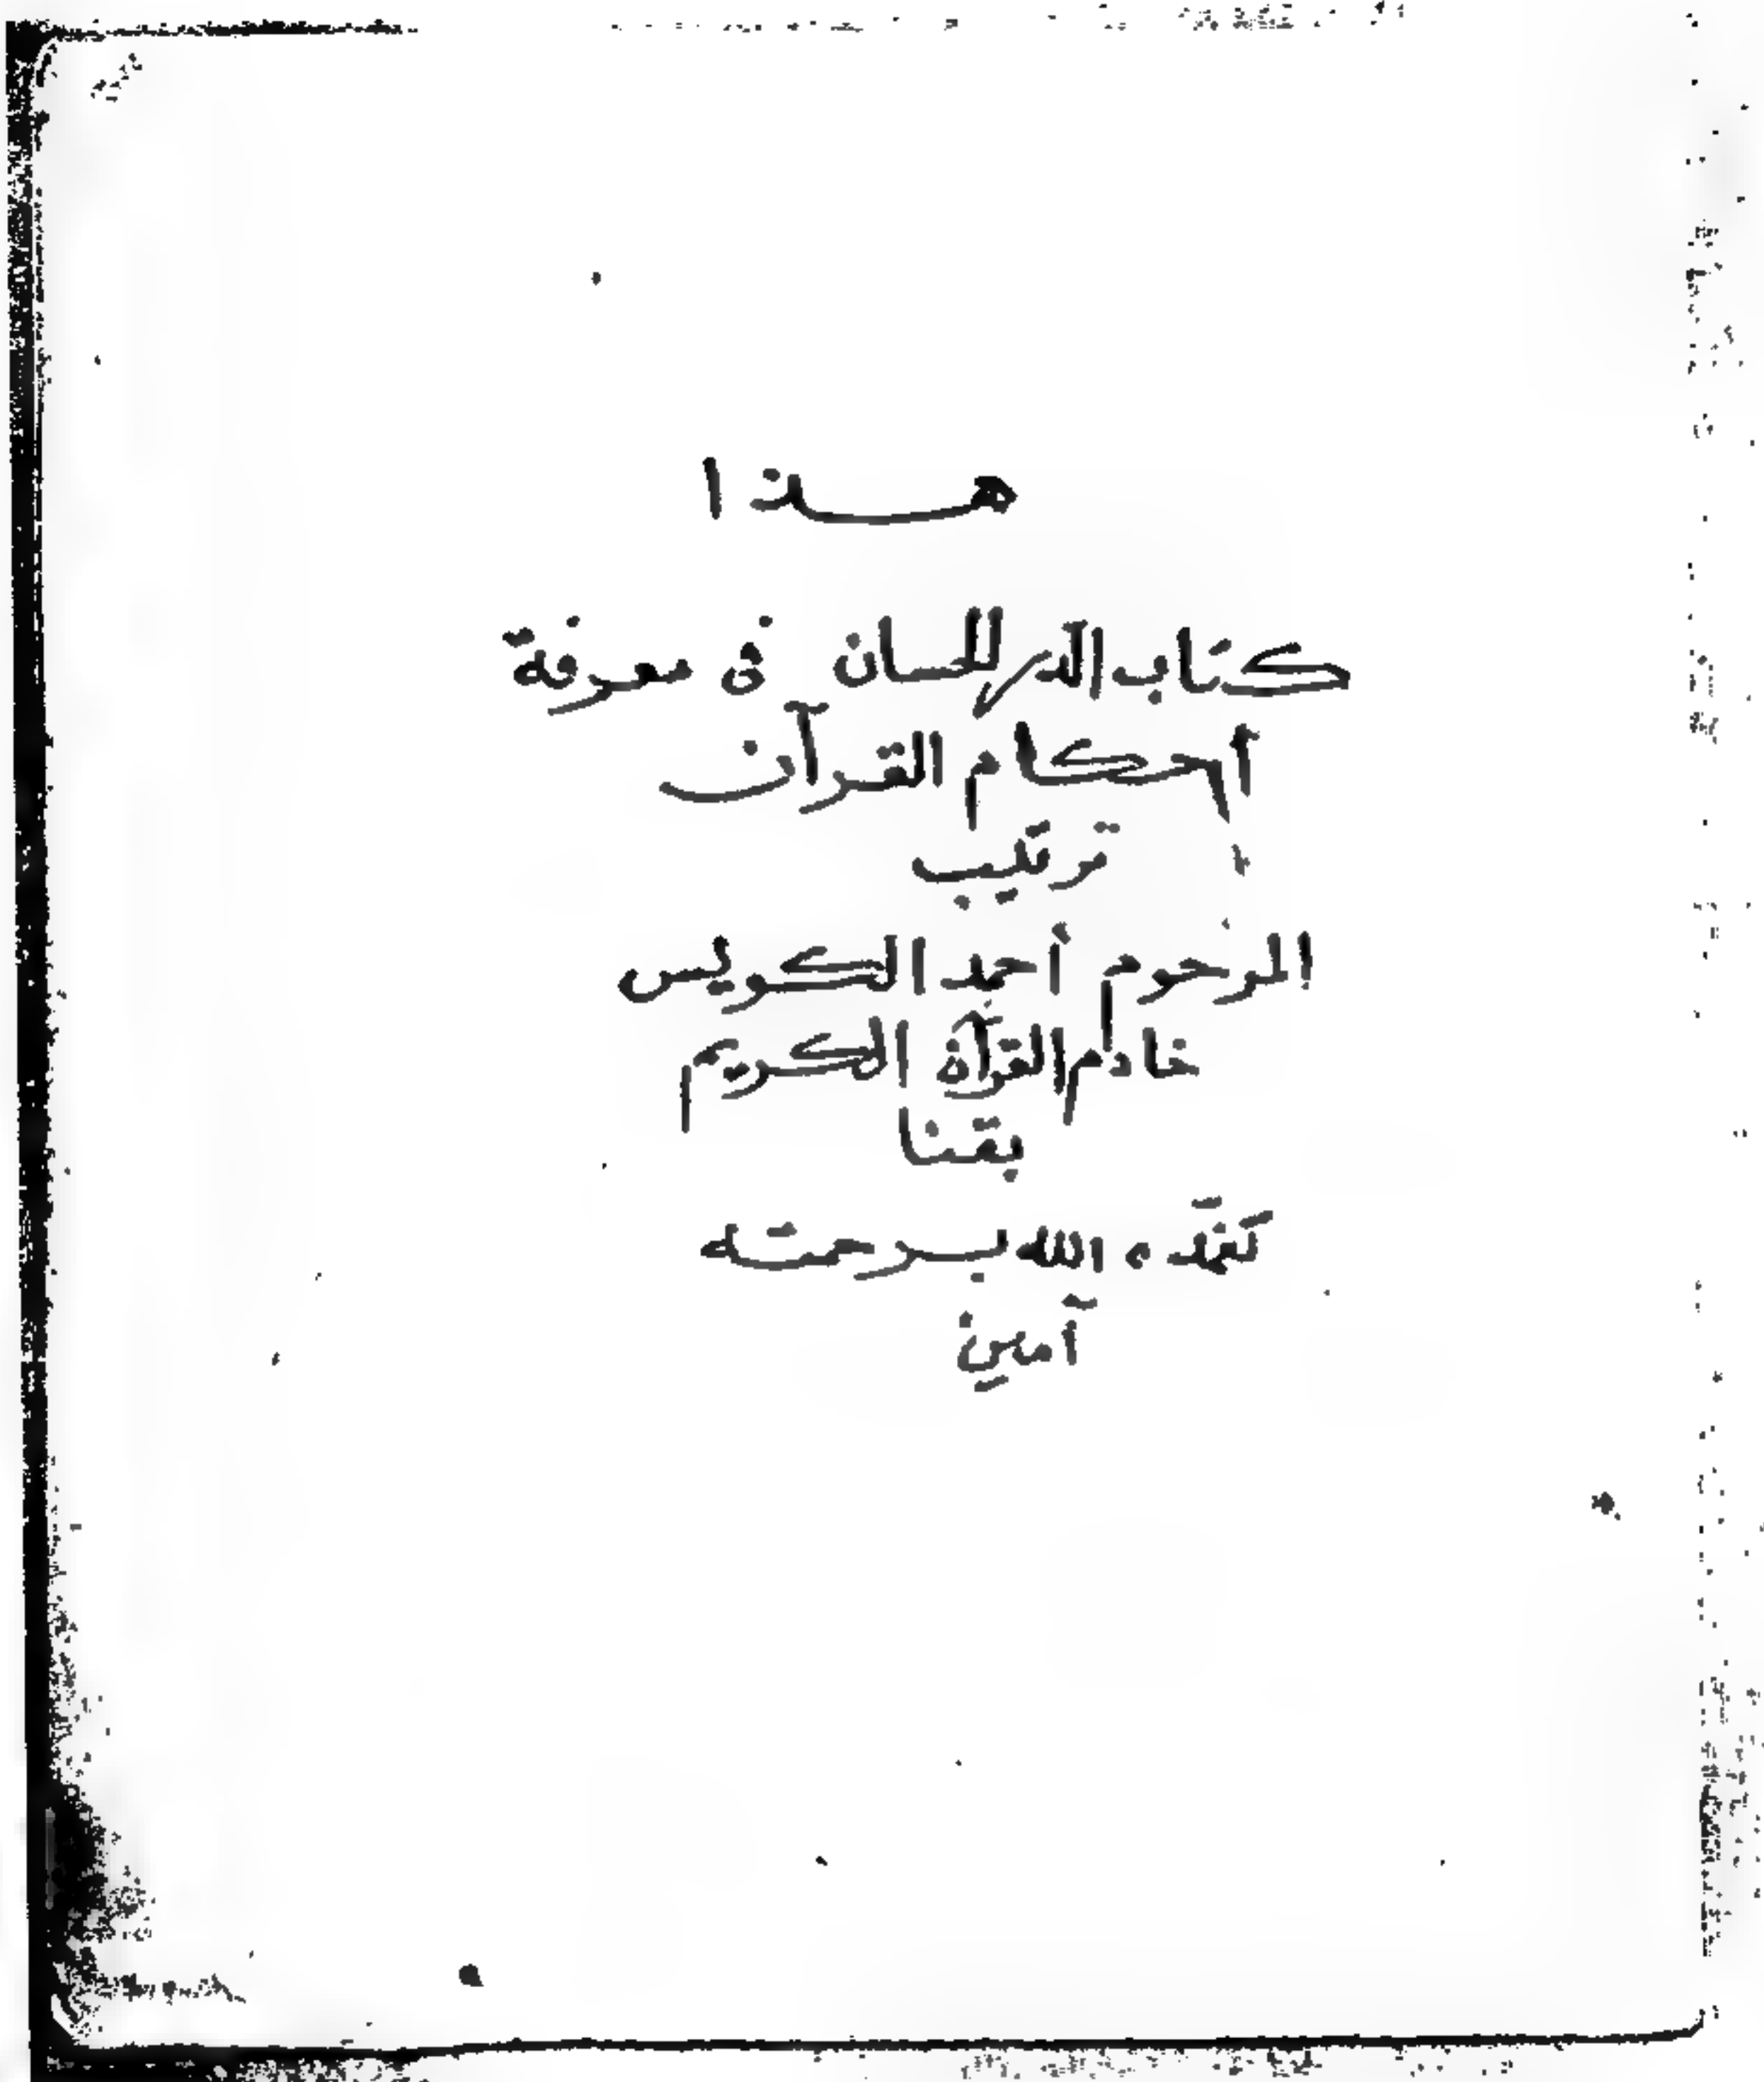 هذا
كتاب الدر الحسان فى معرفة
أحكام القرآن
ترتيب
المرحوم أحمد الكويس
خادم القرآن الكريم
بقنا
تغمّده الله برحمته
آمين